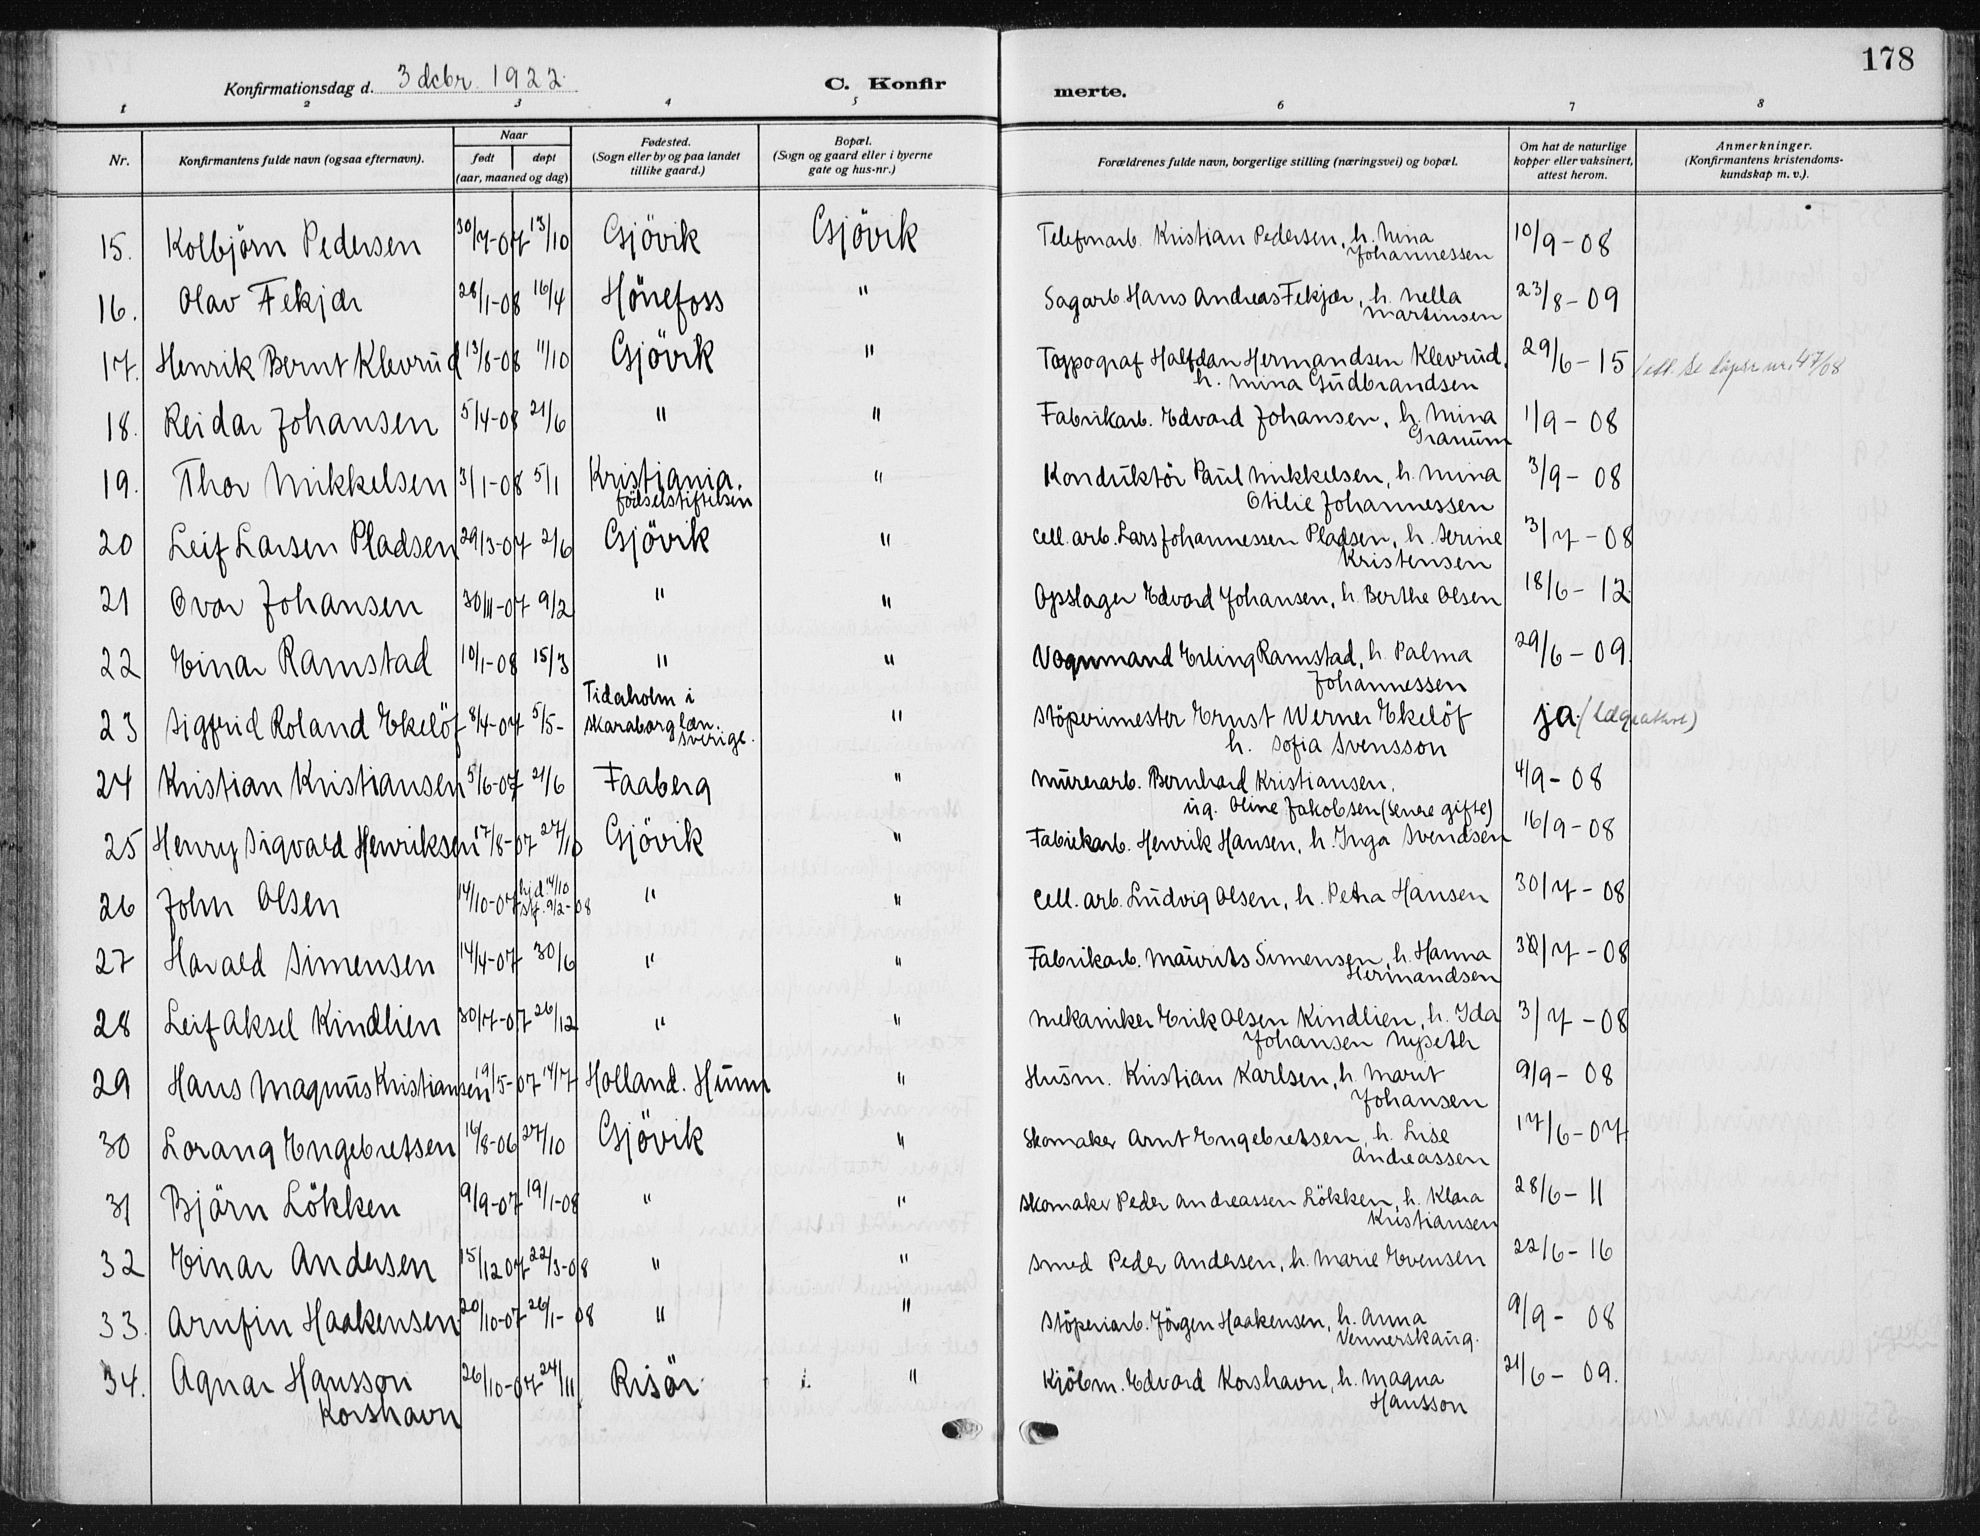 178
Konfirmationsdag d. 3 dcbr. 1922. C. Konfirmerte.
1 2 3 4 5 6 7 8
Nr. Konfirmantens fulde navn (ogsaa efternavn). Naar født døpt (aar, maaned og dag) Fødested. (Sogn eller by og paa landet tillike gaard.) Bopæl. (Sogn og gaard eller i byerne gate og hus-nr.) Forældrenes fulde navn, borgerlige stilling (næringsvei) og bopæl. Om hat de naturlige kopper eller vaksinert, attest herom. Anmerkninger. (Konfirmantens kristendomskundskap m. v.).
15. Kolbjörn Pedersen 30/7-07 13/10 Gjövik Gjövik Telefonarb. Kristian Pedersen, h. Mina Johannessen 10/9-08
16. Olav Fekjær 28/1-08 16/4 Hönefoss " Sagarb. Hans Andreas Fekjær, h. Nella Martinsen 23/8-09
17. Henrik Bernt Klevrud 13/8-08 11/10 Gjövik " Typograf Halfdan Hermandsen Klevrud, h. Mina Gudbrandsen 29/6-15 nr. 47/08
18. Reidar Johansen 5/4-08 21/6 " " Fabrikarb. Edvard Johansen, h. Mina Granum 1/9-08
19. Thor Mikkelsen 3/1-08 5/1 Kristiania. födselsstiftelsen " Konduktör Paul Mikkelsen, h. Mina Otilie Johannessen 3/9-08
20 Leif Larsen Pladsen 29/3-07 2/6 Gjövik " Cell. arb. Lars Johannessen Pladsen, h. Serine Kristensen 3/7-08
21 Ovar Johansen 30/11-07 9/2 " " Opslager Edvard Johansen, h. Berthe Olsen 18/6-12
22 Einar Ramstad 10/1-08 15/3 " " Vognmand Erling Ramstad, h. Palma Johannessen 29/6-09.
23 Sigfrid Roland Ekelöf 8/4-07 5/5- Tidaholm i Skaraborg län. Sverige. " Stöperimester Ernst Werner Ekelöf h. Sofia Svensson ja.
24 Kristian Kristiansen 5/6-07 21/6 Faaberg " Murerarb. Bernhard Kristiansen, ug. Oline Jakobsen (senere gifte) 4/9-08
25 Henry Sigvald Henriksen 17/8-07 27/10 Gjövik " Fabrikarb. Henrik Hansen, h. Inga Svendsen 16/9-08
26 John Olsen 14/10-07 hjd. 14/10 stf. 9/2-08 " " Cell. arb. Ludvig Olsen, h. Petra Hansen 30/7-08
27 Harald Simensen 14/4-07 30/6 " " Fabrikarb. Maurits Simensen, h. Hanna Hermandsen 30/7-08
28 Leif Aksel Kindlien 30/7-07 26/12 " " Mekaniker Erik Olsen Kindlien, h. Ida Johansen Nyseth 3/7-08
29 Hans Magnus Kristiansen 19/5-07 14/7 Holland. Hunn " Husm. Kristian Karlsen, h. Marit Johansen 9/9-08
30 Lorang Engebretsen 16/8-06 27/10 Gjövik " Skomaker Arnt Engebretsen, h. Lise Andreassen 17/6-07
31 Björn Lökken 9/9-07 19/1-08 " " Skomaker Peder Andreassen Lökken, h. Klara Kristiansen 28/6-11
32 Einar Andersen 15/12 07 22/3-08 " " Smed Peder Andersen, h. Marie Evensen 22/6-16
33. Arnfin Haakensen 20/10-07 26/1-08 " " Stöperiarb. Jörgen Haakensen, h. Anna Vennerskaug. 9/9-08
34. Agnar Hansson Korshavn 26/10-07 24/11 Risör " Kjöbm. Edvard Korshavn, h. Magna Hansson 21/6-09.